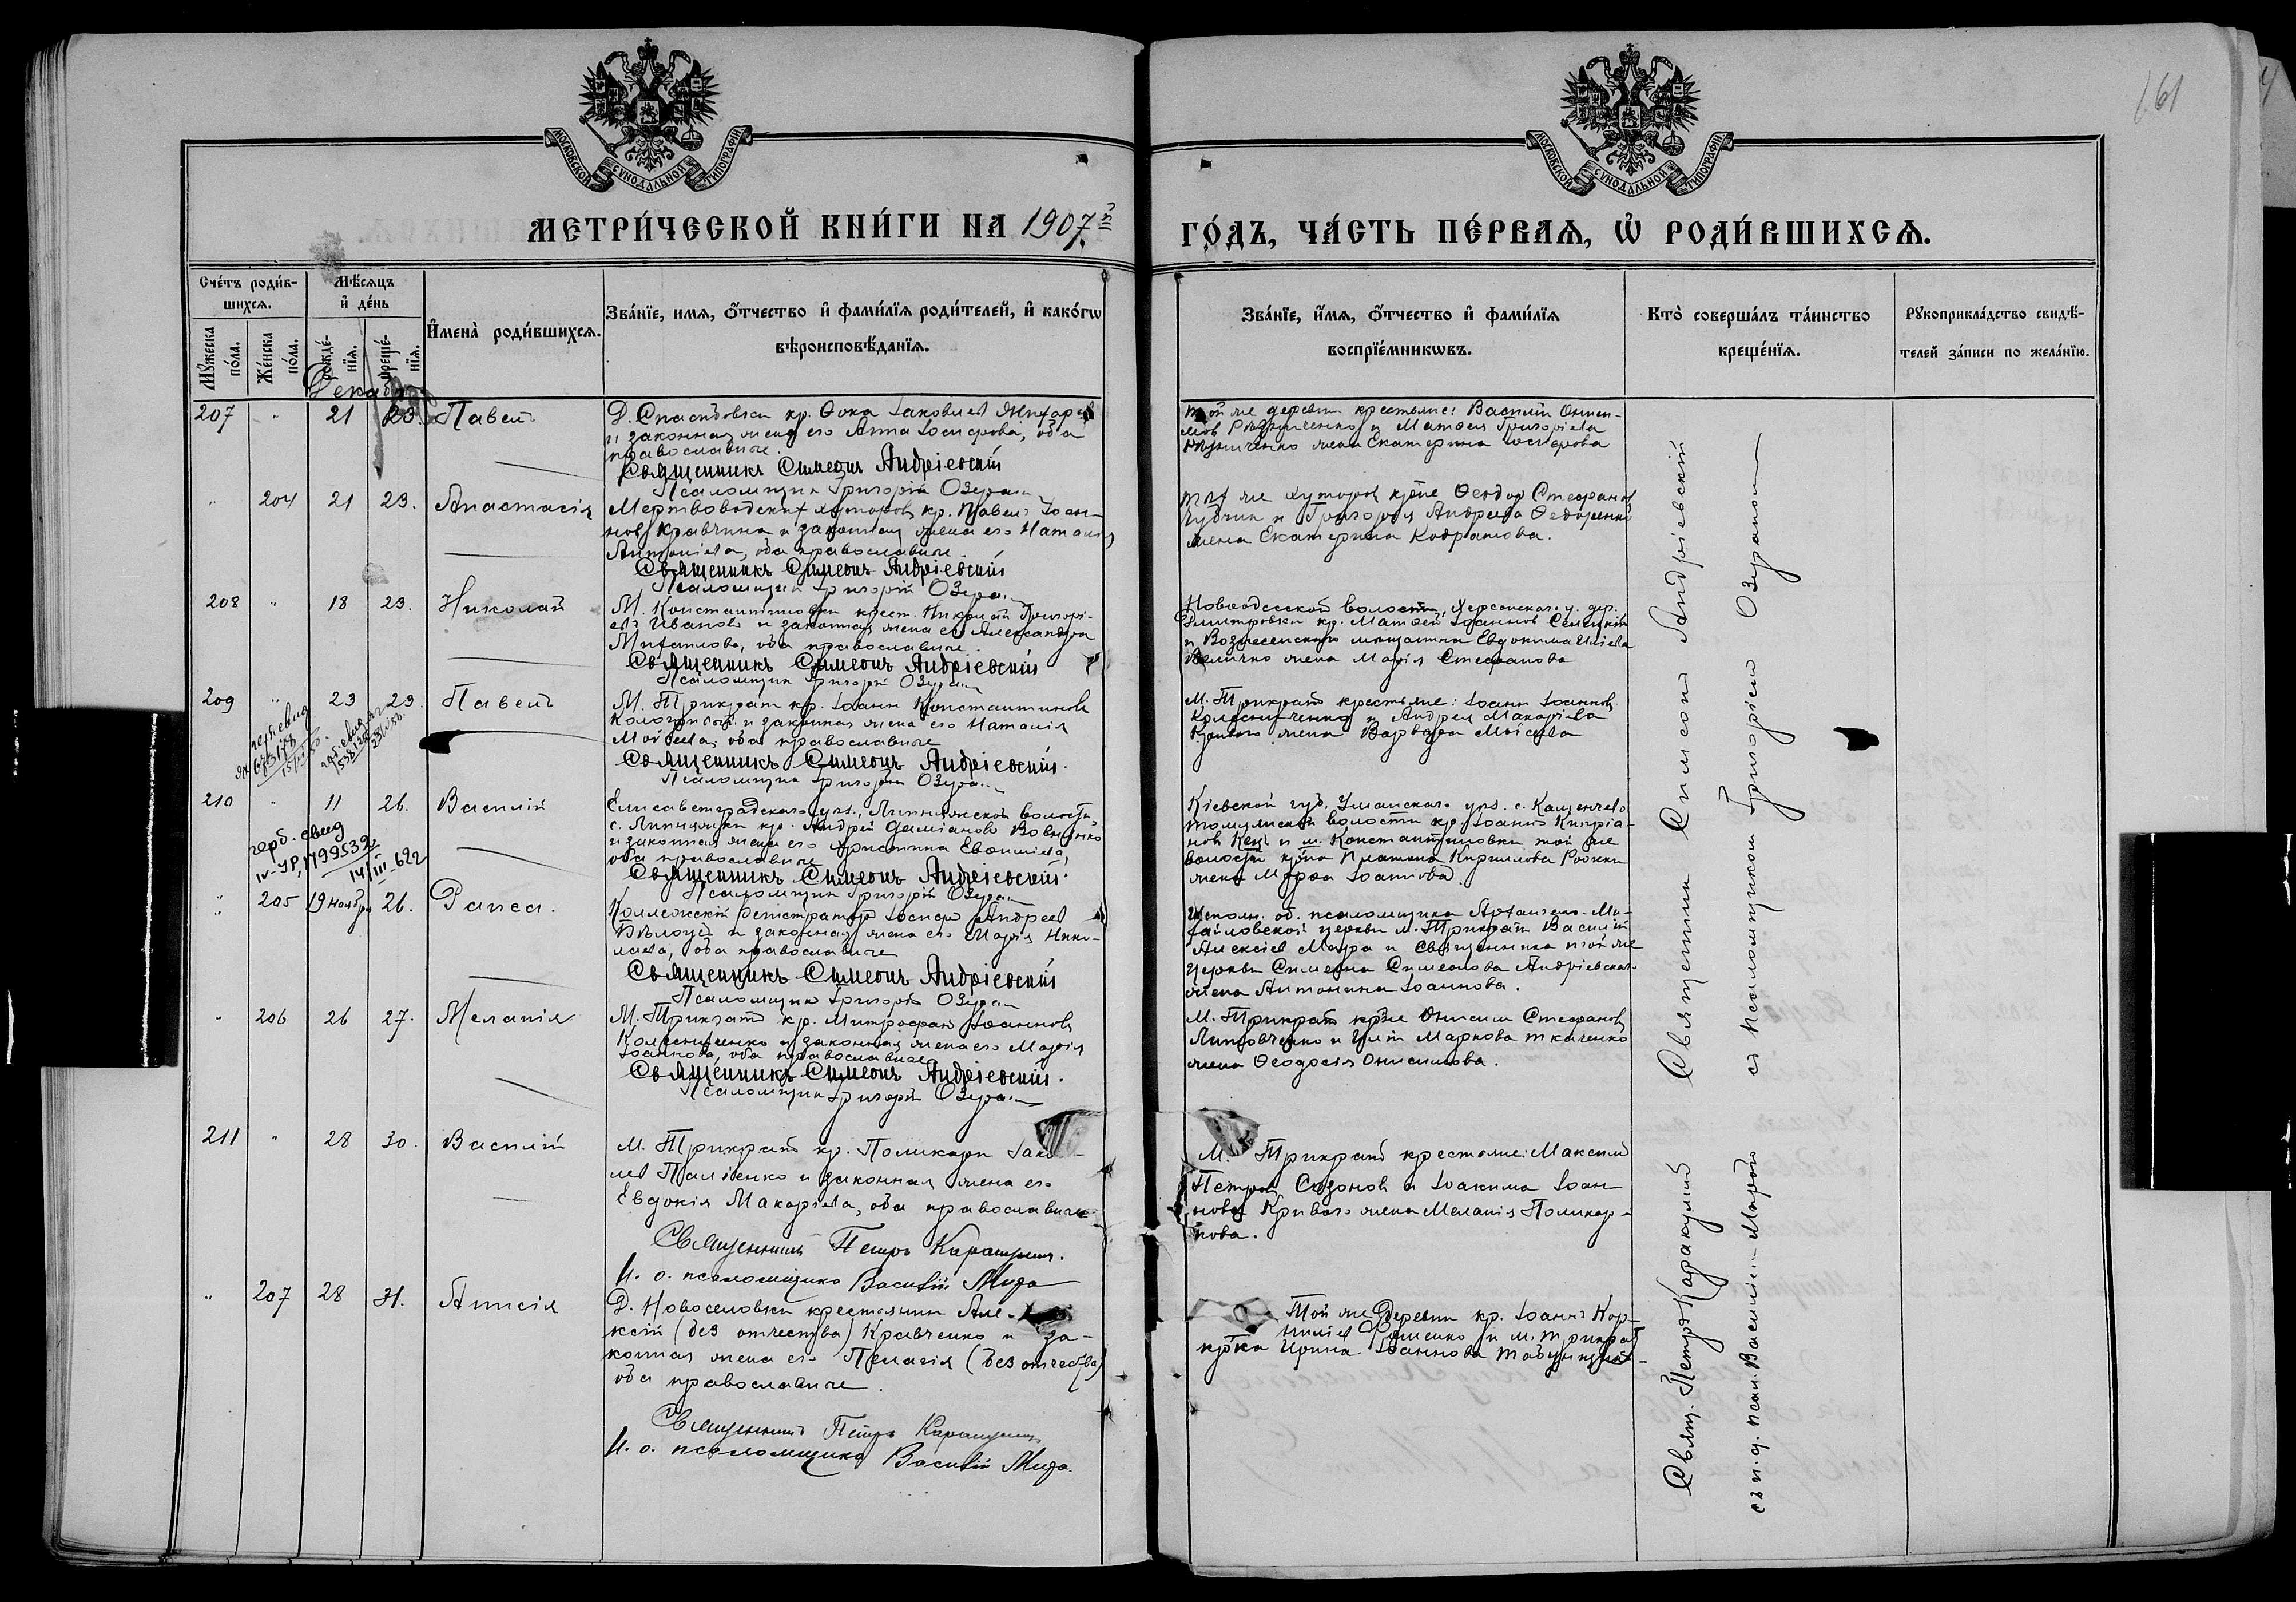 161
МОСКОВСКОЙ СѴНОДАЛЬНОЙ ТИПОГРАФІИ
МОСКОВСКОЙ СѴНОДАЛЬНОЙ ТИПОГРАФІИ
МЕТРИ́ЧЕСКОЙ КНИ́ГИ НА 1907й
ГО́ДЪ, ЧА́СТЬ ПЕ́РВАѦ, Ѡ҆ РОДИ́ВШИХСѦ.
Сче́тъ роди́в-
шихсѧ.
Мꙋ́жеска по́ла.
Же́нска по́ла.
Мѣ́сѧцъ и҆ де́нь
рожде́-нїѧ.
креще́-нїѧ.
И҆мена̀ роди́вшихсѧ.
Зва́нїе, имѧ, ѻ҆́тчество и҆ фами́лїѧ роди́телей, и҆ како́гѡ
вѣроисповѣ́данїѧ.
Зва́нїе, и҆́мѧ, ѻ҆́тчество и҆ фами́лїѧ
воспрїе́мникѡвъ.
Кто̀ соверша́лъ та́инство
креще́нїѧ.
Рꙋкоприкла́дство свидѣ́-
телей за́писи по жела́нїю.
Декабрь
207 " 21 23. Павелъ
Д. Спасібовки кр. Ѳока Іаковлев
и законная жена его Анна Іосифова, оба
православные.
Священникъ Симеонъ Андріевскій
Псаломщик Григорій Озеран
той же деревни крестьяне: Василій Ониси-
мов и Матѳея Григоріева
жена Екатерина Іосифова
" 204 21 23. Анастасія
Мертвоводских хуторов кр. Павел Іоан-
нов Кравчина и законная жена его Наталія
Антоніева, оба православные.
Священникъ Симеонъ Андріевскій
Псаломщик Григорій Озеран
тех же хуторов кр̃не Ѳеодор Стефанов
и Григорія Андреева Ѳедоренко
жена Екатерина Кодратова.
208 " 18 23. Николай
М. Константиновки крест. Николай Григорі-
ев Иванов и законная жена его Александра
Михаилова, оба православные.
Священникъ Симеонъ Андріевскій
Псаломщик Григорій Озеран
Новоодесской волости, Херсонскаго у. дер.
Димитровки кр. Матѳей Іоаннов Селецкій
и Вознесенскаго мещанина Евдокима Иліева
Величко жена Марія Стефанова
209 " 23 23. Павелъ
М. Трикрат кр. Іоанн Константинов
и законная жена его Наталія
Моѵсеева, оба православные
Священникъ Симеонъ Андріевскій.
Псаломщик Григорій Озеран
М. Трикрат крестьяне: Іоанн Іоаннов
Колесниченко и Андрея Макаріева
Кривого жена Варвара Моѵсеева
210 " 11 26. Василій
герб. свид
IV-УР, №799539
14/III-62г
Елисаветградскаго у., волости,
с. кр. Андрей Даміанов Вовненко
и законная жена его Христина Евѳиміева,
оба православные
Священникъ Симеонъ Андріевскій.
Псаломщик Григорій Озеран
Кіевской губ. Уманскаго у. с.
волости кр. Іоанн Кипріа-
нов и м. Константиновки той же
волости кр̃на Платона Кириллова
жена Марѳа Іоаннова.
" 205 19 ноября 26. Раиса.
Коллежскій регистратор Іосиф Андреев
Бѣлоус и законная жена его Марія Нико-
лаева, оба православные
Священникъ Симеонъ Андріевскій
Псаломщик Григорій Озеран
Исполн. об. псаломщика Архангело-Ми-
хаиловской церкви м. Трикрат Василій
Алексіев Мидра и священника той же
церкви Симеона Симеонова Андріевскаго
жена Антонина Іоаннова.
" 206 26 27. Меланія
М. Трикрат кр. Митрофан Іоаннов
Колесниченко и законная жена его Марія
Іоаннова, оба православные
Священникъ Симеонъ Андріевскій.
Псаломщик Григорій Озеран
М. Трикрат кр̃не Онисим Стефанов
Липовченко и Иліи Маркова Ткаченко
жена Ѳеодосія Онисимова.
211 " 28 30. Василій
М. Трикрат кр. Поликарп Іаков-
лев Паліенко и законная жена его
Евдокія Макаріева, оба православные
Священникъ Петръ Каракулинъ.
И. о. псаломщика Василій Мидра
М. Трикрат крестьяне: Максим
Петров Созонов и Іоакима Іоан-
нова Кривого жена Меланія Поликар-
пова.
" 207 28 31. Анисія
Д. Новоселовки крестьянин Але-
ксій (без отчества) Кравченко и за-
конная жена его Пелагія (без отчества)
оба православные.
Священникъ Петръ Каракулинъ
И. о. псаломщика Василій Мидра.
Той же деревни кр. Іоаннъ Кор-
ниліев Фоменко и м. Трикрат
кр̃ка Ирина Іоаннова
Священник Симеон Андріевскій
съ псаломщиком Григоріем Озераном
Свящ. Петръ Каракулинъ
съ и. д. псал. Василіем Мидрою